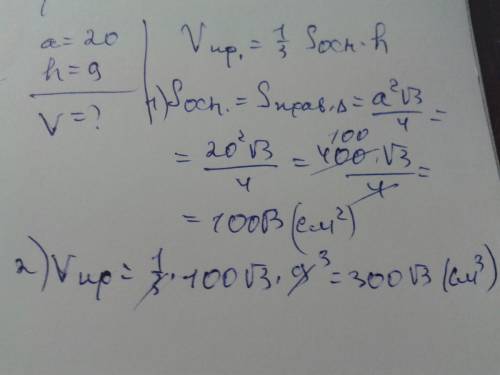 a = 20
h = 9
V = ?
Vпр. = 1/3 Sосн. h
1) Sосн. = Sправ.Δ = a²√3/4 =
= 20²√3/4 = 400·√3/4 =
100
= 100√3 (см²)
2) Vпр = 1/3 · 100√3 · 9 3 = 300√3 (см³)